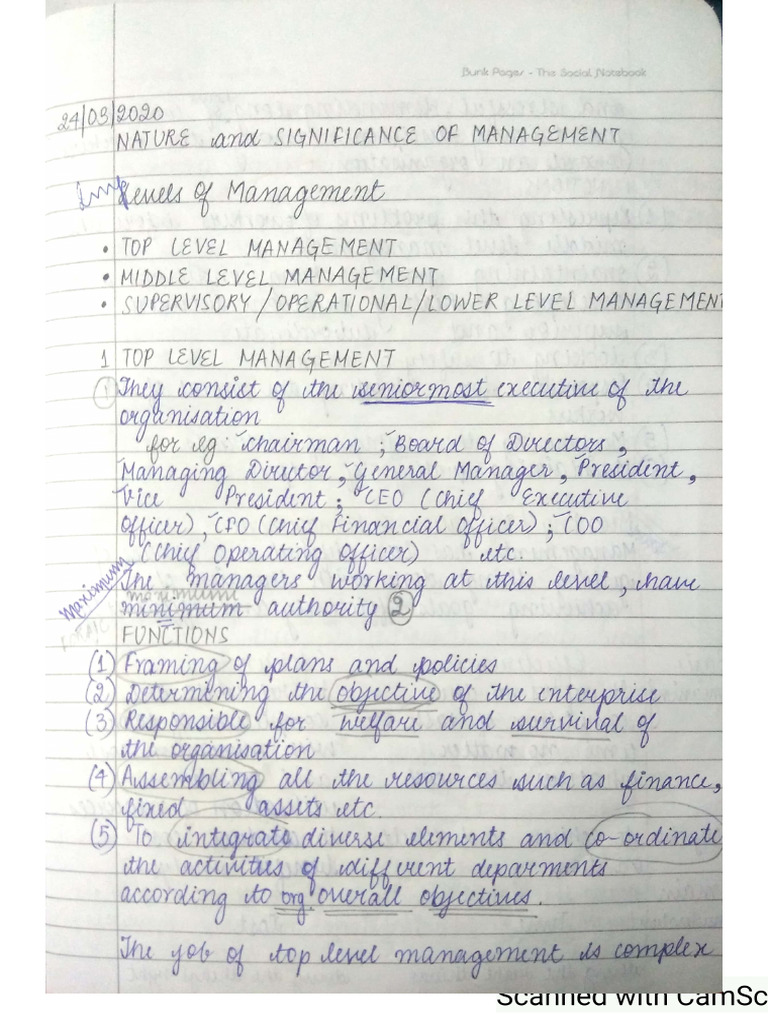 Bunk Pages - The Social Notebook
24/03/2020
NATURE and SIGNIFICANCE OF MANAGEMENT
Imp Levels of Management
• TOP LEVEL MANAGEMENT
• MIDDLE LEVEL MANAGEMENT
• SUPERVISORY/OPERATIONAL/LOWER LEVEL MANAGEMENT
1 TOP LEVEL MANAGEMENT
① They consist of the seniormost executive of the
organisation
for eg: chairman ; Board of Directors,
Managing Director, General Manager, President,
Vice President; CEO (Chief Executive
Officer), CFO (Chief Financial Officer) ; COO
(Chief Operating Officer) etc.
The managers working at this level, have
maximum
Maximum minimum authority ②
FUNCTIONS
(1) Framing of plans and policies
(2) Determining the objective of the enterprise
(3) Responsible for welfare and survival of
the organisation
(4) Assembling all the resources such as finance,
fixed assets etc.
(5) To integrate diverse elements and co-ordinate
the activities of different deparments
according to org. overall objectives.
The job of top level management is complex
Scanned with CamSc